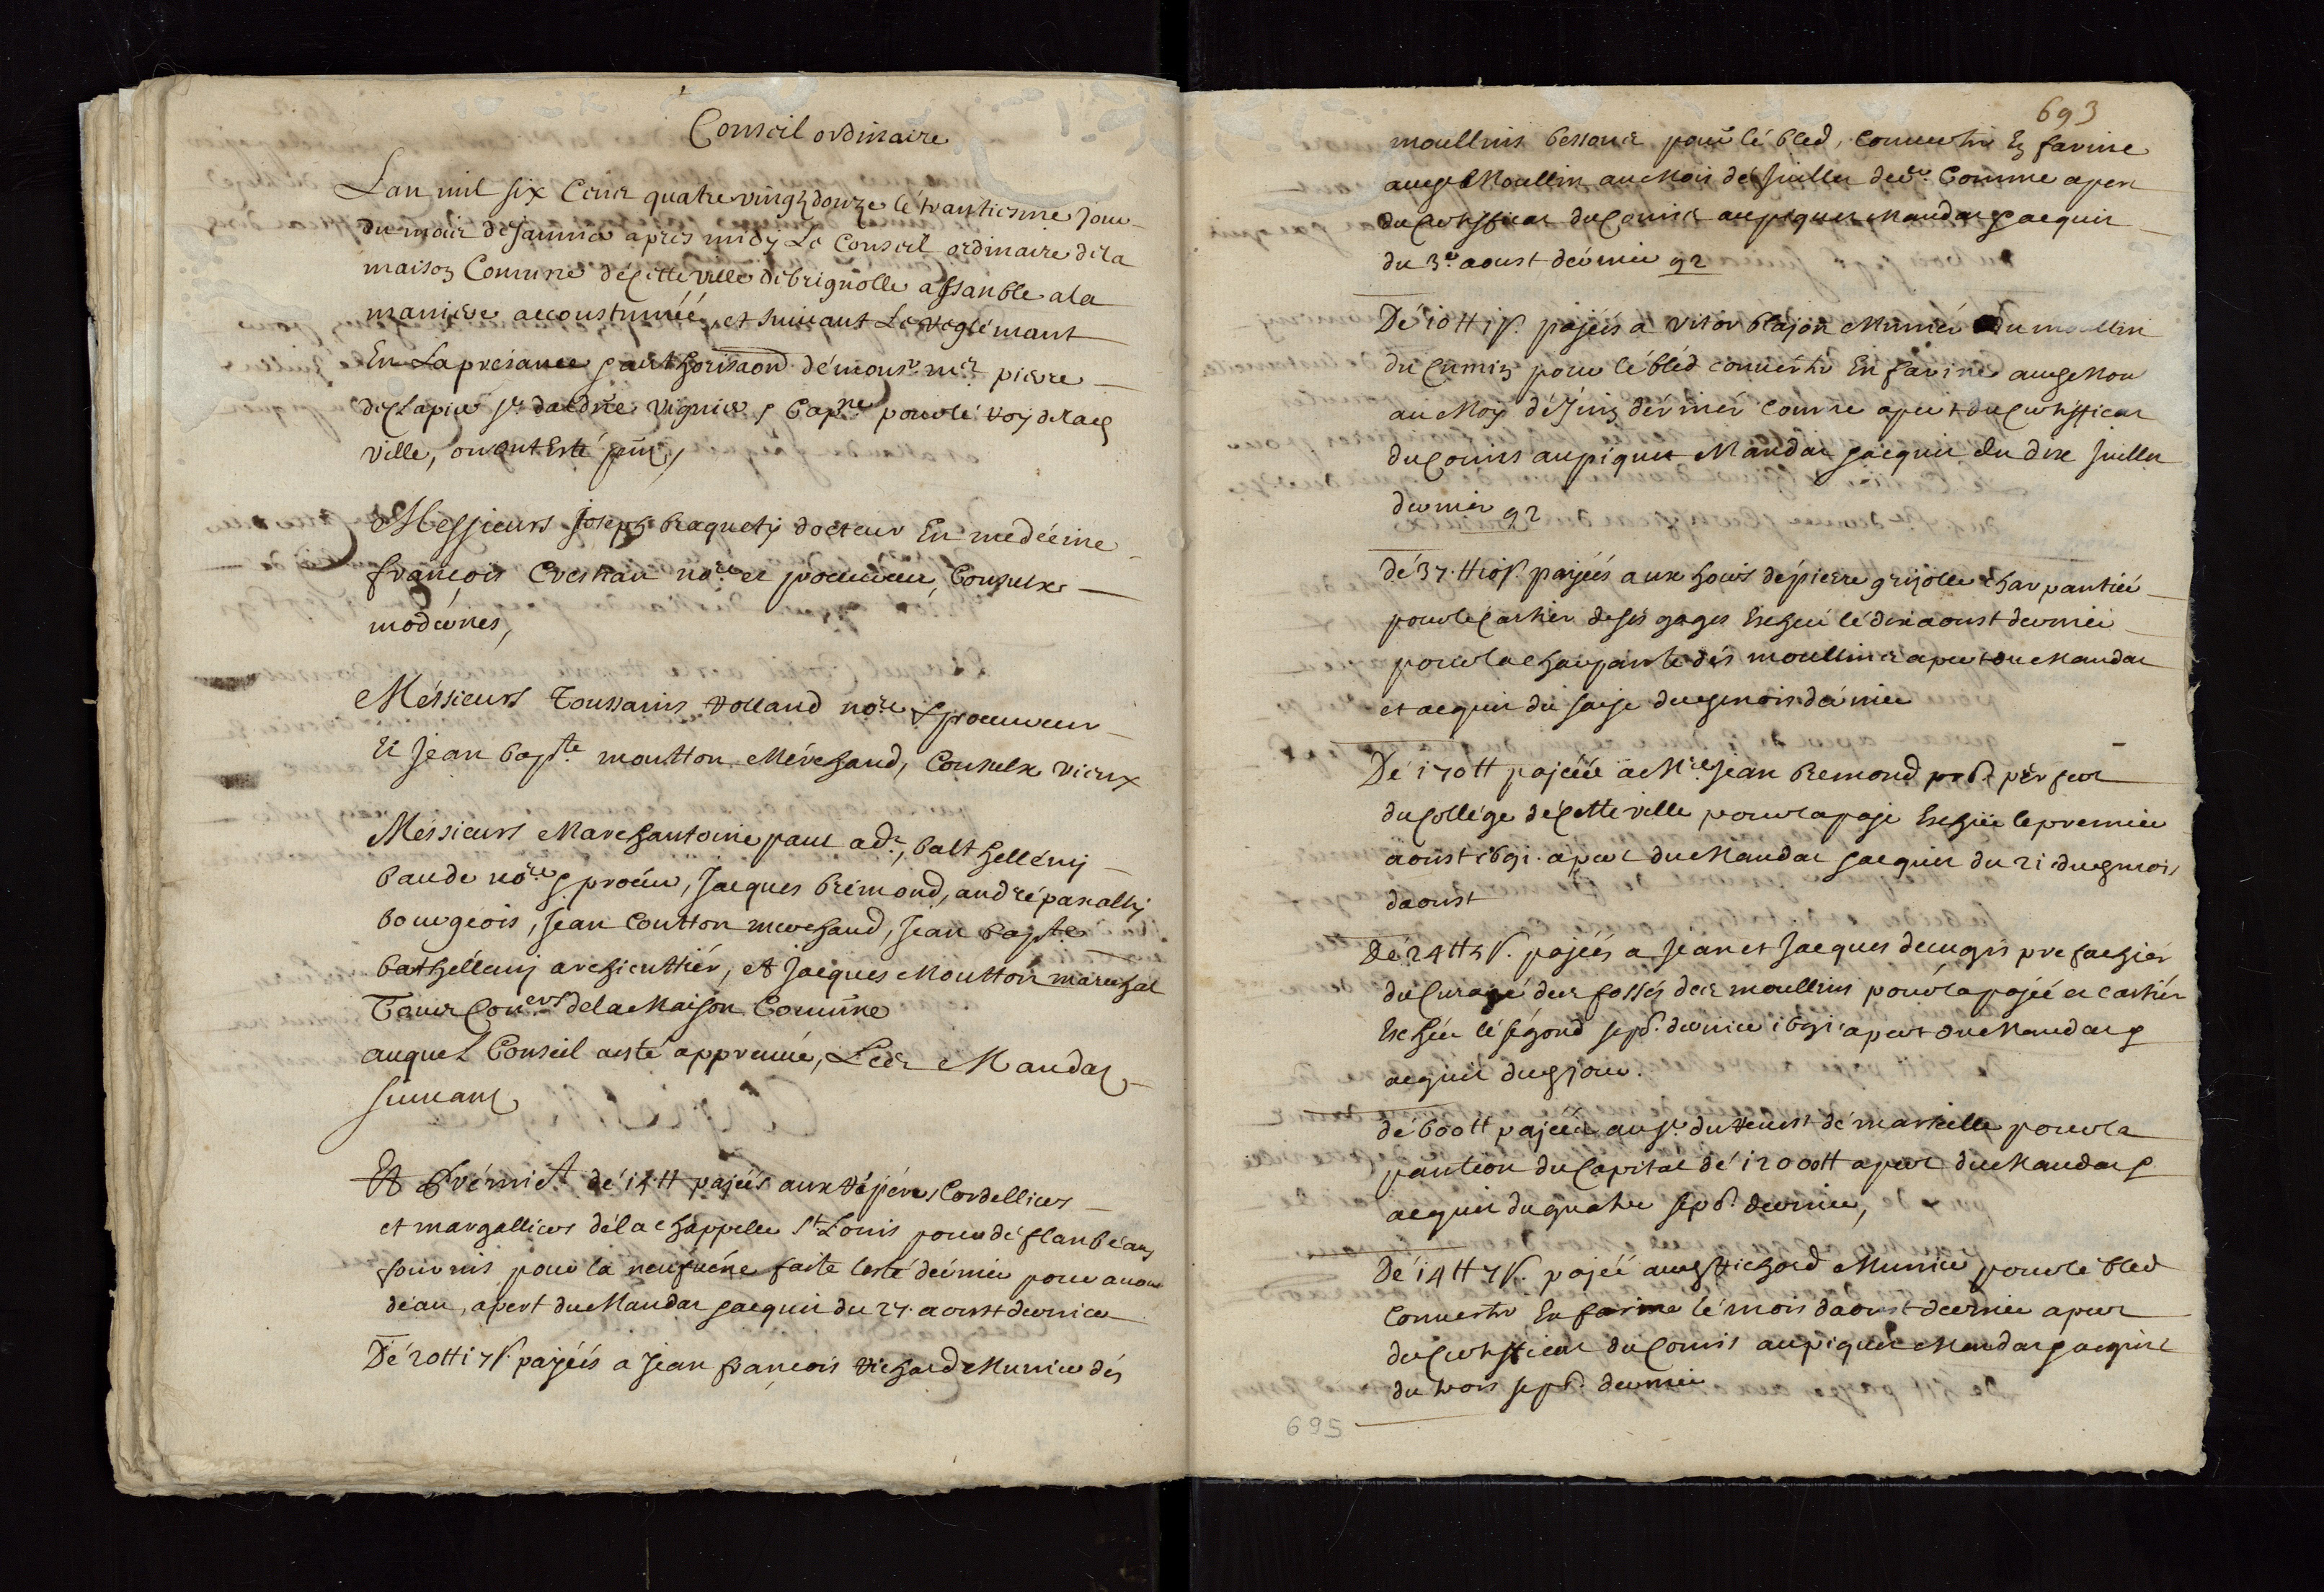 Conseil ordinaire
Lan mil six Cens quatre vingtz douze lé trantiesme jour
du mois de Janvier apres midy Le Conseil ordinaire de la
maison Comune de cette ville de brignolle assanblé a la
maniere accoustumée, et suivant Le reglémant
En La presance & authorisaon dé monsr mre pierre
de Clapier Sr daldre viguier & Capne pour lé roy de lad
ville, ou ont esté pnts,
Messieurs Joseph braquety docteur En medecine
françois Crestian nore et procureur, Conseulx
modernes,
Méssieurs Toussains rolland nore & procureur
Et Jean bapte moutton Mérchand, Conseulx vieux
Méssieurs Marc hantoine paul adt, balthellémy
baude nore & procur, Jacques brémond, andré paxally
bourgeois, Jean Coutton merchand, Jean bapte
barthellemy archicuttiér, et Jacques Moutton maréchal
Tous Coners de la Maison Comune
auquel Conseil a esté apprenué, Les Mandatz
suivantz
Et Prémier dé 14 ₶ pajéés aux répéres Cordelliers
et margalliers dé la chappelle St Louis pour dé flanbéaux
fournis pour la neufuéne faite lesté dérnier pour avoir
déau, apert du Mandat & acquit du 27 aoust dernier
Dé 20 ₶ 17 s. pajéés a Jean françois richard Munier dés
693
moullins bessons pour lé bled, converti En farine
aud Moullin au Mois dé Juillet derer Comme apert
du Certifficat du Comis au piquet Mandat & acquit
du 3e aoust dérnier 92
Dé 10 ₶ 1 s. pajéés a Vitor blajon Muniér du moullin
du Cumin pour lé bléd convérty En farine aud Mou
au Moy dé Juin dérniér Comme apert du Certifficat
du Comis au piquet Mandat & acquit du dix Juillet
dernier 92
dé 37 ₶ 10 s. pajéés aux hoirs dé pierre grisolle charpantiér
pour lé Cartier de ses gages Escheu lé dix aoust dernier
pour la charpante dés moullins apert du Mandat
et acquit du saije dud mois dérnier
Dé 170 ₶ pajéés a Mre Jean bremond pbre
du Collége dé Cette ville pour la paje Escheue le premier
aoust 1691. apert du Mandat & acquit du 21 dud mois
daoust
Dé 24 ₶ 5 s. pajéés a Jean et Jacques deugis prefachiér
du Curagé des fossés des moullins pour la pajée et cartiér
Escheu lé ségond sepbre dernier 1691 apert du Mandat &
acquit dud jour.
dé 600 ₶ pajéés au Sr du revest dé marseille pour la
pantion du Capital dé 12000 ₶ apert du Mandat &
acquit du quatre sepbre dernier,
Dé 14 ₶ 7 s. pajéé aud richard Munier pour lé bled
Converty En farine lé mois daoust dernier apert
du Certifficat du Comis au piquet Mandat & acquit
du trois sepbre dernier
695